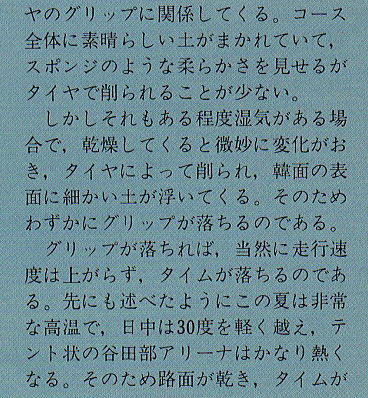 ヤのグリップに関係してくる。コース
全体に素晴らしい土がまかれていて，
スポンジのような柔らかさを見せるが
タイヤで削られることが少ない。
しかしそれもある程度湿気がある場
合で，乾燥してくると微妙に変化がお
き，タイヤによって削られ，韓面の表
面に細かい土が浮いてくる。そのため
わずかにグリップが落ちるのである。
グリップが落ちれば，当然に走行速
度は上がらず，タイムが落ちるのであ
る。先にも述べたようにこの夏は非常
な高温で，日中は30度を軽く越え，テ
ント状の谷田部アリーナはかなり熱く
なる。そのため路面が乾き，タイムが